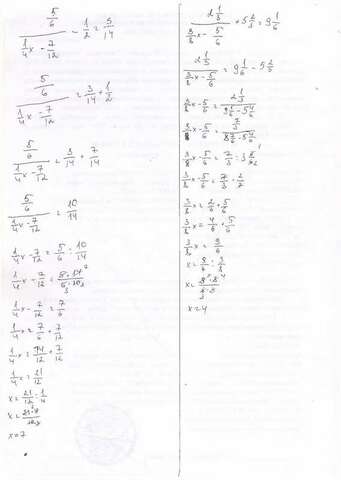 (5/6)/(1/4x - 7/12) - 1/2 = 3/14
(5/6)/(1/4x - 7/12) = 3/14 + 1/2
(5/6)/(1/4x - 7/12) = 3/14 + 7/14
(5/6)/(1/4x - 7/12) = 10/14
1/4x - 7/12 = 5/6 : 10/14
1/4x - 7/12 = 5·14/6·10
1/4x - 7/12 = 7/6
1/4x = 7/6 + 7/12
1/4x = 14/12 + 7/12
1/4 = 21/12
x = 21/12 : 1/4
x = 21·4/12
x = 7
(2 1/3)/(3/8x - 5/6) + 5 2/3 = 9 1/6
(2 1/3)/(3/8x - 5/6) = 9 1/6 - 5 2/3
3/8x - 5/6 = (2 1/3)/(9 1/6 - 5 4/6)
3/8x - 5/6 = (7/3)/(8 7/6 - 5 4/6)
3/8x - 5/6 = 7/3 : 3
3/8x - 5/6 = 7/3 · 2/7
3/8x = 4/6 + 5/6
3/8x = 9/6
x = 9/6 : 3/8
x = 9·8/6·3
x = 4